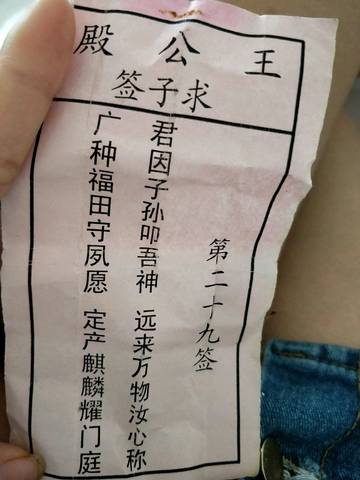 王公殿
求子签
第二十九签
君因子孙叩吾神 远来万物汝心称
广种福田守夙愿 定产麒麟耀门庭